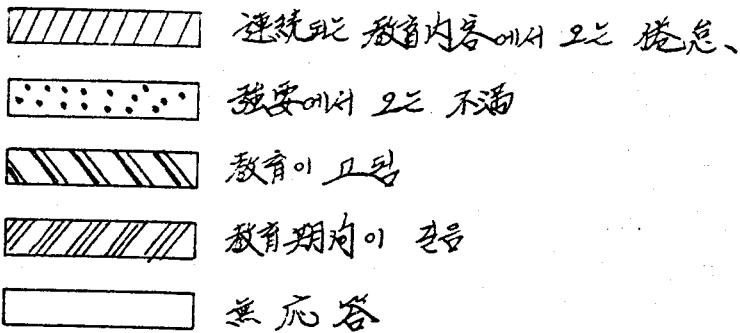 連続되는 教育内容에서 오는 倦怠、
強要에서 오는 不満
教育이 고됨
教育期间이 긴음
無応答